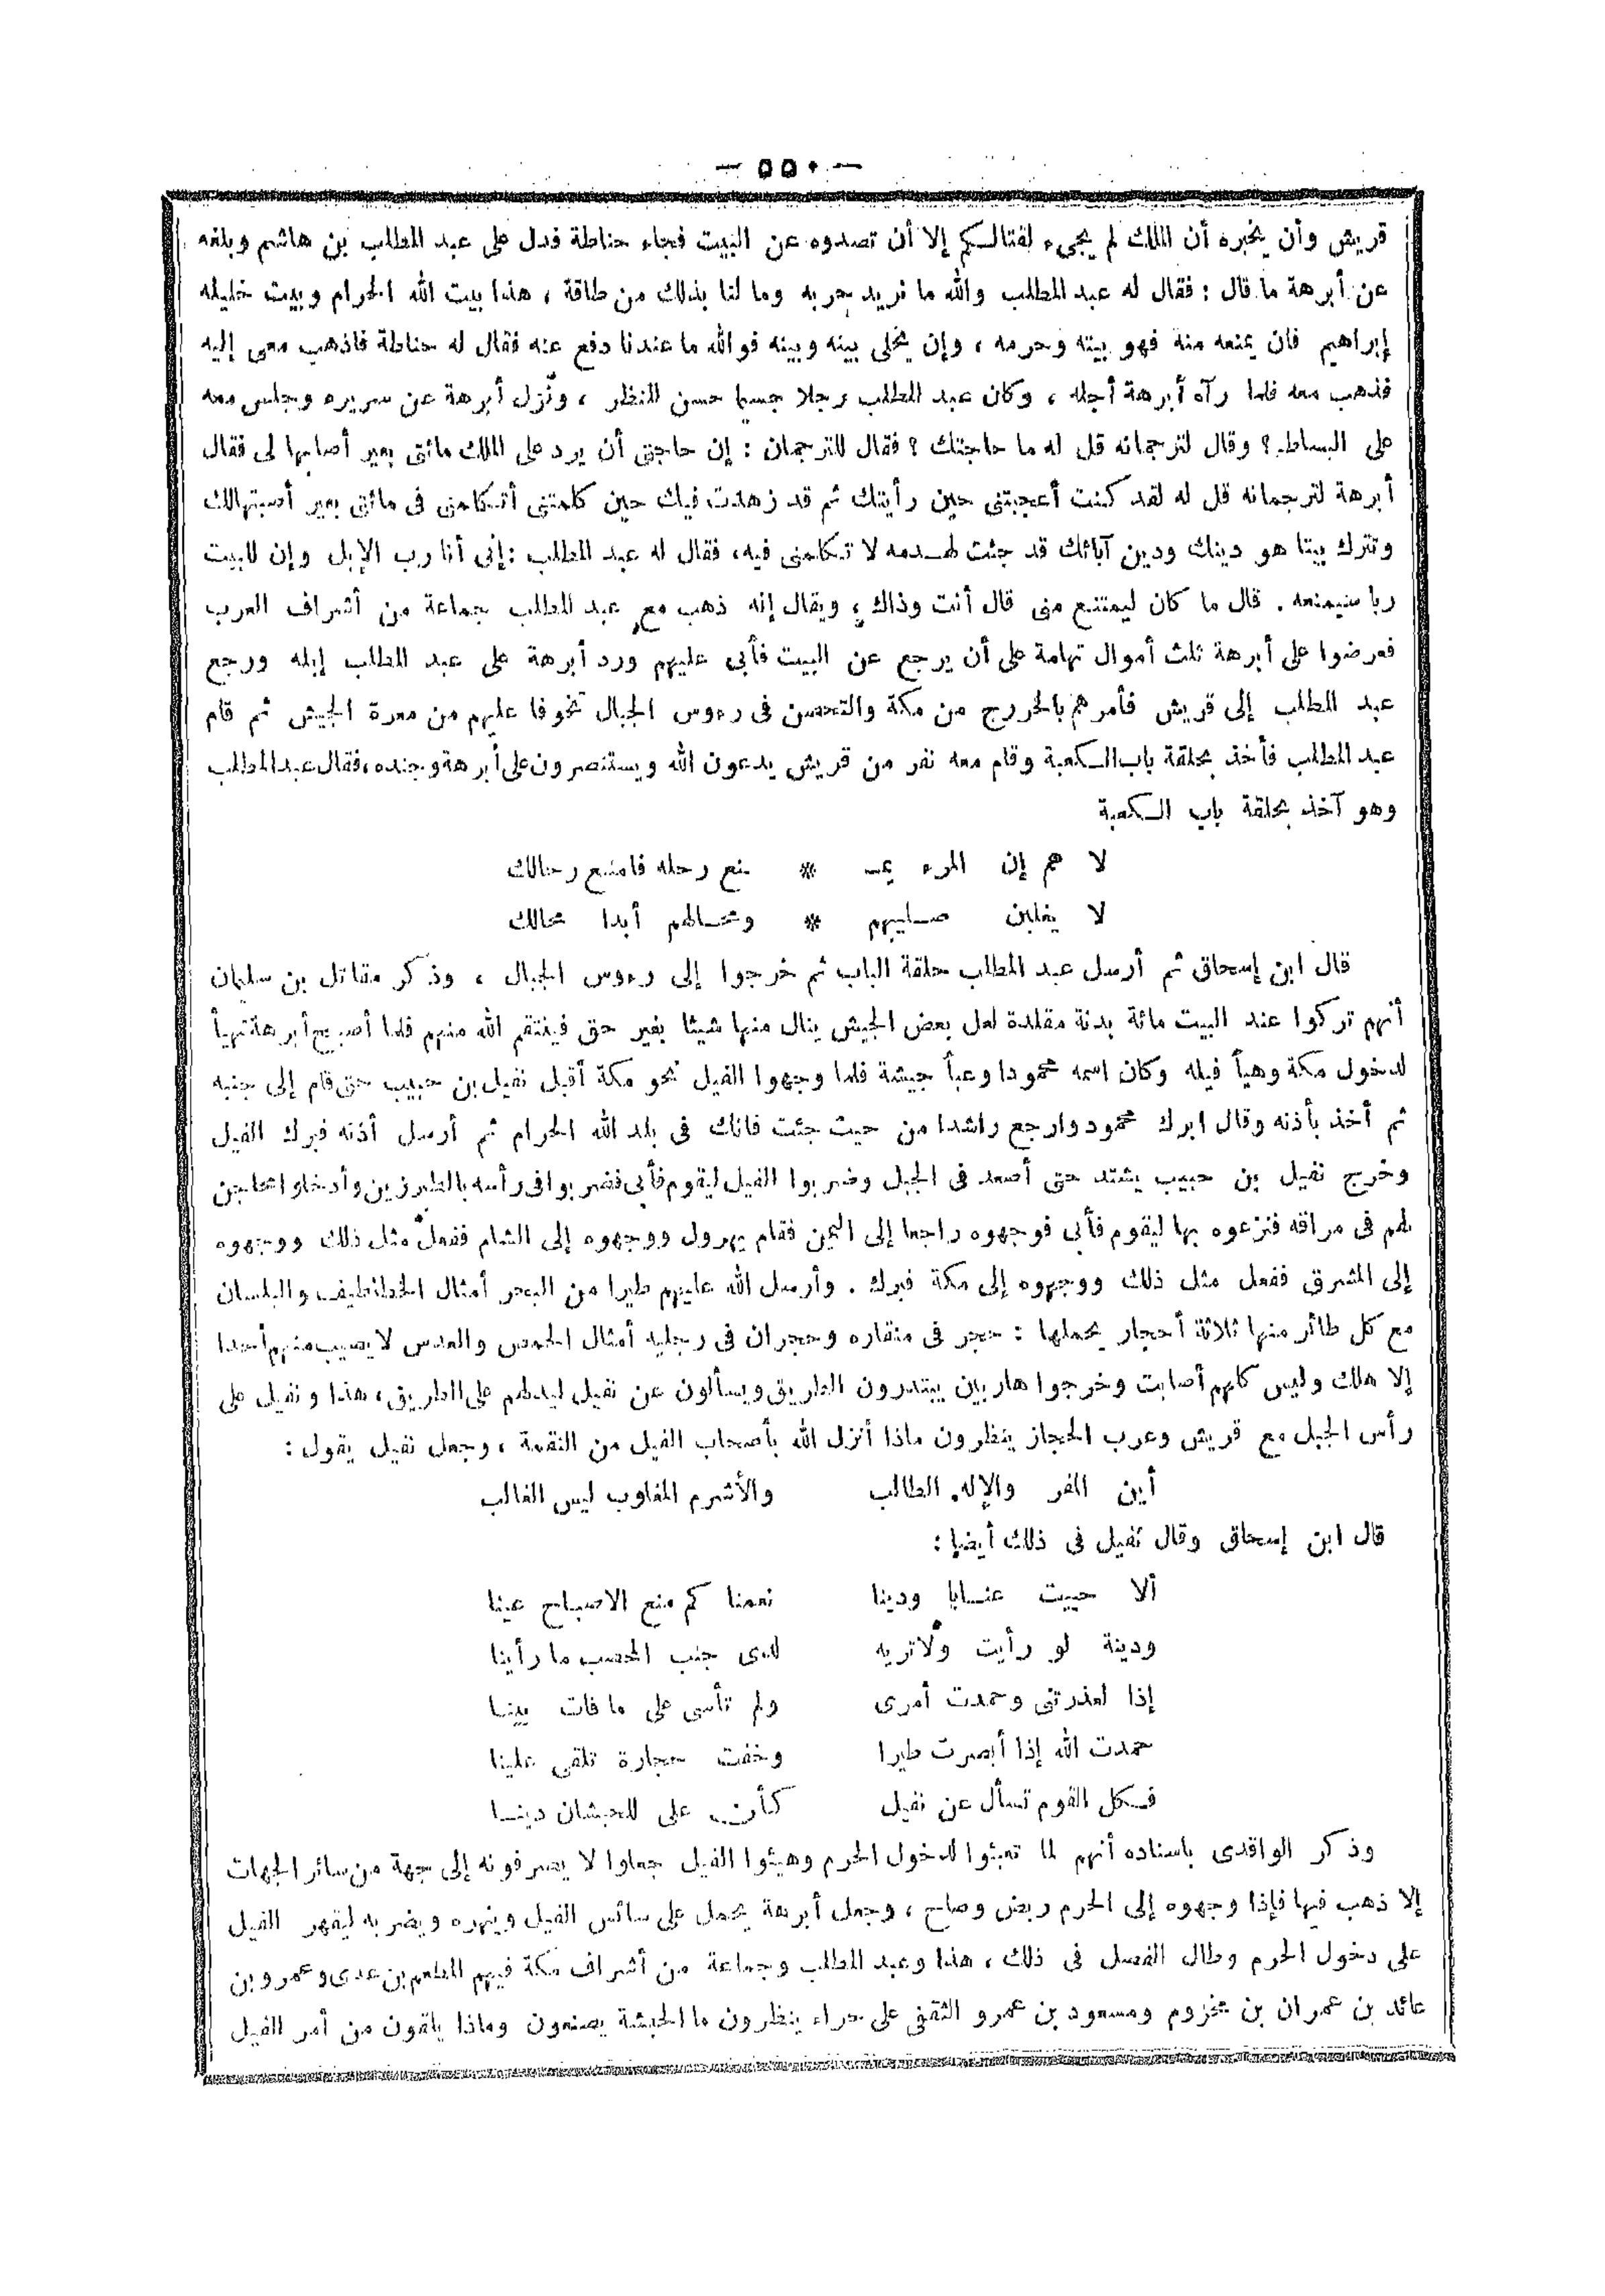 — ٥٥٠ —
قريش وأن يخبره أن الملك لم يجىء لقتالكم إلا أن تصدوه عن البيت فجاء حناطة فدل على عبد المطلب بن هاشم وبلغه
عن أبرهة ما قال : فقال له عبد المطلب والله ما نريد حربه وما لنا بذلك من طاقة ، هذا بيت الله الحرام وبيت خليله
إبراهيم فان يمنعه منه فهو بيته وحرمه ، وإن يخلى بينه وبينه فوالله ما عندنا دفع عنه فقال له حناطة فاذهب معى إليه
فذهب معه فلما رآه أبرهة أجله ، وكان عبد المطلب رجلا جسيما حسن المنظر ، ونزل أبرهة عن سريره وجلس معه
على البساط ؟ وقال لترجمانه قل له ما حاجتك ؟ فقال للترجمان : إن حاجتى أن يرد على الملك مائتى بعير أصابها لى فقال
أبرهة لترجمانه قل له لقد كنت أعجبتنى حين رأيتك ثم قد زهدت فيك حين كلمتنى أتكلمنى فى مائتى بعير أصبتهالك
وتترك بيتا هو دينك ودين آبائك قد جئت لهدمه لا تكلمنى فيه، فقال له عبد المطلب : إنى أنا رب الإبل وإن للبيت
ربا سيمنعه . قال ما كان ليمتنع منى قال أنت وذاك ، ويقال إنه ذهب مع عبد المطلب جماعة من أشراف العرب
فعرضوا على أبرهة ثلث أموال تهامة على أن يرجع عن البيت فأبى عليهم ورد أبرهة على عبد المطلب إبله ورجع
عبد المطلب إلى قريش فأمرهم بالخروج من مكة والتحصن فى رءوس الجبال تخوفا عليهم من معرة الجيش ثم قام
عبد المطلب فأخذ بحلقة باب الكعبة وقام معه نفر من قريش يدعون الله ويستنصرون على أبرهة وجنده، فقال عبد المطلب
وهو آخذ بحلقة باب الكعبة
لا هم إن المرء يمـ * ـنع رحله فامنع رحالك
لا يغلبن صليبهم * ومحالهم أبدا محالك
قال ابن إسحاق ثم أرسل عبد المطلب حلقة الباب ثم خرجوا إلى رءوس الجبال ، وذكر مقاتل بن سليمان
أنهم تركوا عند البيت مائة بدنة مقلدة لعل بعض الجيش ينال منها شيئا بغير حق فينتقم الله منهم فلما أصبح أبرهة تهيأ
لدخول مكة وهيأ فيله وكان اسمه محمودا وعبأ جيشه فلما وجهوا الفيل نحو مكة أقبل نفيل بن حبيب حتى قام إلى جنبه
ثم أخذ بأذنه وقال ابرك محمود وارجع راشدا من حيث جئت فانك فى بلد الله الحرام ثم أرسل أذنه فبرك الفيل
وخرج نفيل بن حبيب يشتد حتى أصعد فى الجبل وضربوا الفيل ليقوم فأبى فضربوا فى رأسه بالطبرزين وأدخلوا محاجن
لهم فى مراقه فنزعوه بها ليقوم فأبى فوجهوه راجعا إلى اليمن فقام يهرول ووجهوه إلى الشام ففعل مثل ذلك ووجهوه
إلى المشرق ففعل مثل ذلك ووجهوه إلى مكة فبرك . وأرسل الله عليهم طيرا من البحر أمثال الخطاطيف والبلسان
مع كل طائر منها ثلاثة أحجار يحملها : حجر فى منقاره وحجران فى رجليه أمثال الحمص والعدس لا يصيب منهم أحدا
إلا هلك وليس كلهم أصابت وخرجوا هاربين يبتدرون الطريق ويسألون عن نفيل ليدلهم على الطريق، هذا ونفيل على
رأس الجبل مع قريش وعرب الحجاز ينظرون ماذا أنزل الله بأصحاب الفيل من النقمة ، وجعل نفيل يقول :
أين المفر والإله الطالب والأشرم المغلوب ليس الغالب
قال ابن إسحاق وقال نفيل فى ذلك أيضا :
ألا حييت عنا يا ودينا نعمنا كم منع الاصباح عينا
ودينة لو رأيت ولاتريه لدى جنب المحصب ما رأينا
إذا لعذرتنى وحمدت أمرى ولم تأسى على ما فات بينا
حمدت الله إذا أبصرت طيرا وخفت حجارة تلقى علينا
فكل القوم تسأل عن نفيل كأن على للحبشان دينا
وذكر الواقدى باسناده أنهم لما تعبئوا لدخول الحرم وهيئوا الفيل جعلوا لا يصرفونه إلى جهة من سائر الجهات
إلا ذهب فيها فإذا وجهوه إلى الحرم ربض وصاح ، وجعل أبرهة يحمل على سائس الفيل وينهره ويضربه ليقهر الفيل
على دخول الحرم وطال الفصل فى ذلك ، هذا وعبد المطلب وجماعة من أشراف مكة فيهم المطعم بن عدى وعمرو بن
عائد بن عمران بن مخزوم ومسعود بن عمرو الثقفى على حراء ينظرون ما الحبشة يصنعون وماذا يلقون من أمر الفيل